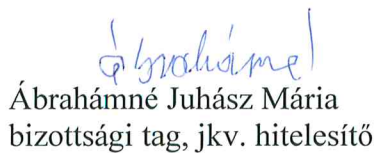 Ábrahámné
Ábrahámné Juhász Mária
bizottsági tag, jkv. hitelesítő